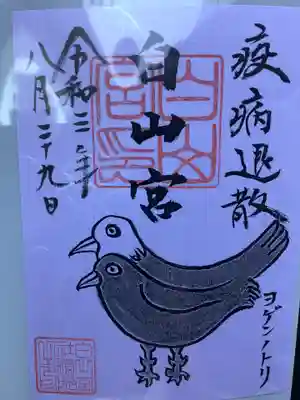 疫病退散
白山宮
令和三年
八月二十九日
ヨゲンノトリ